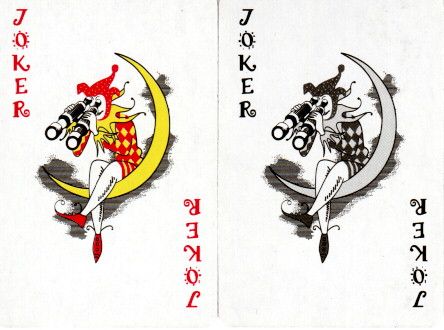 JOKER
JOKER
JOKER
JOKER